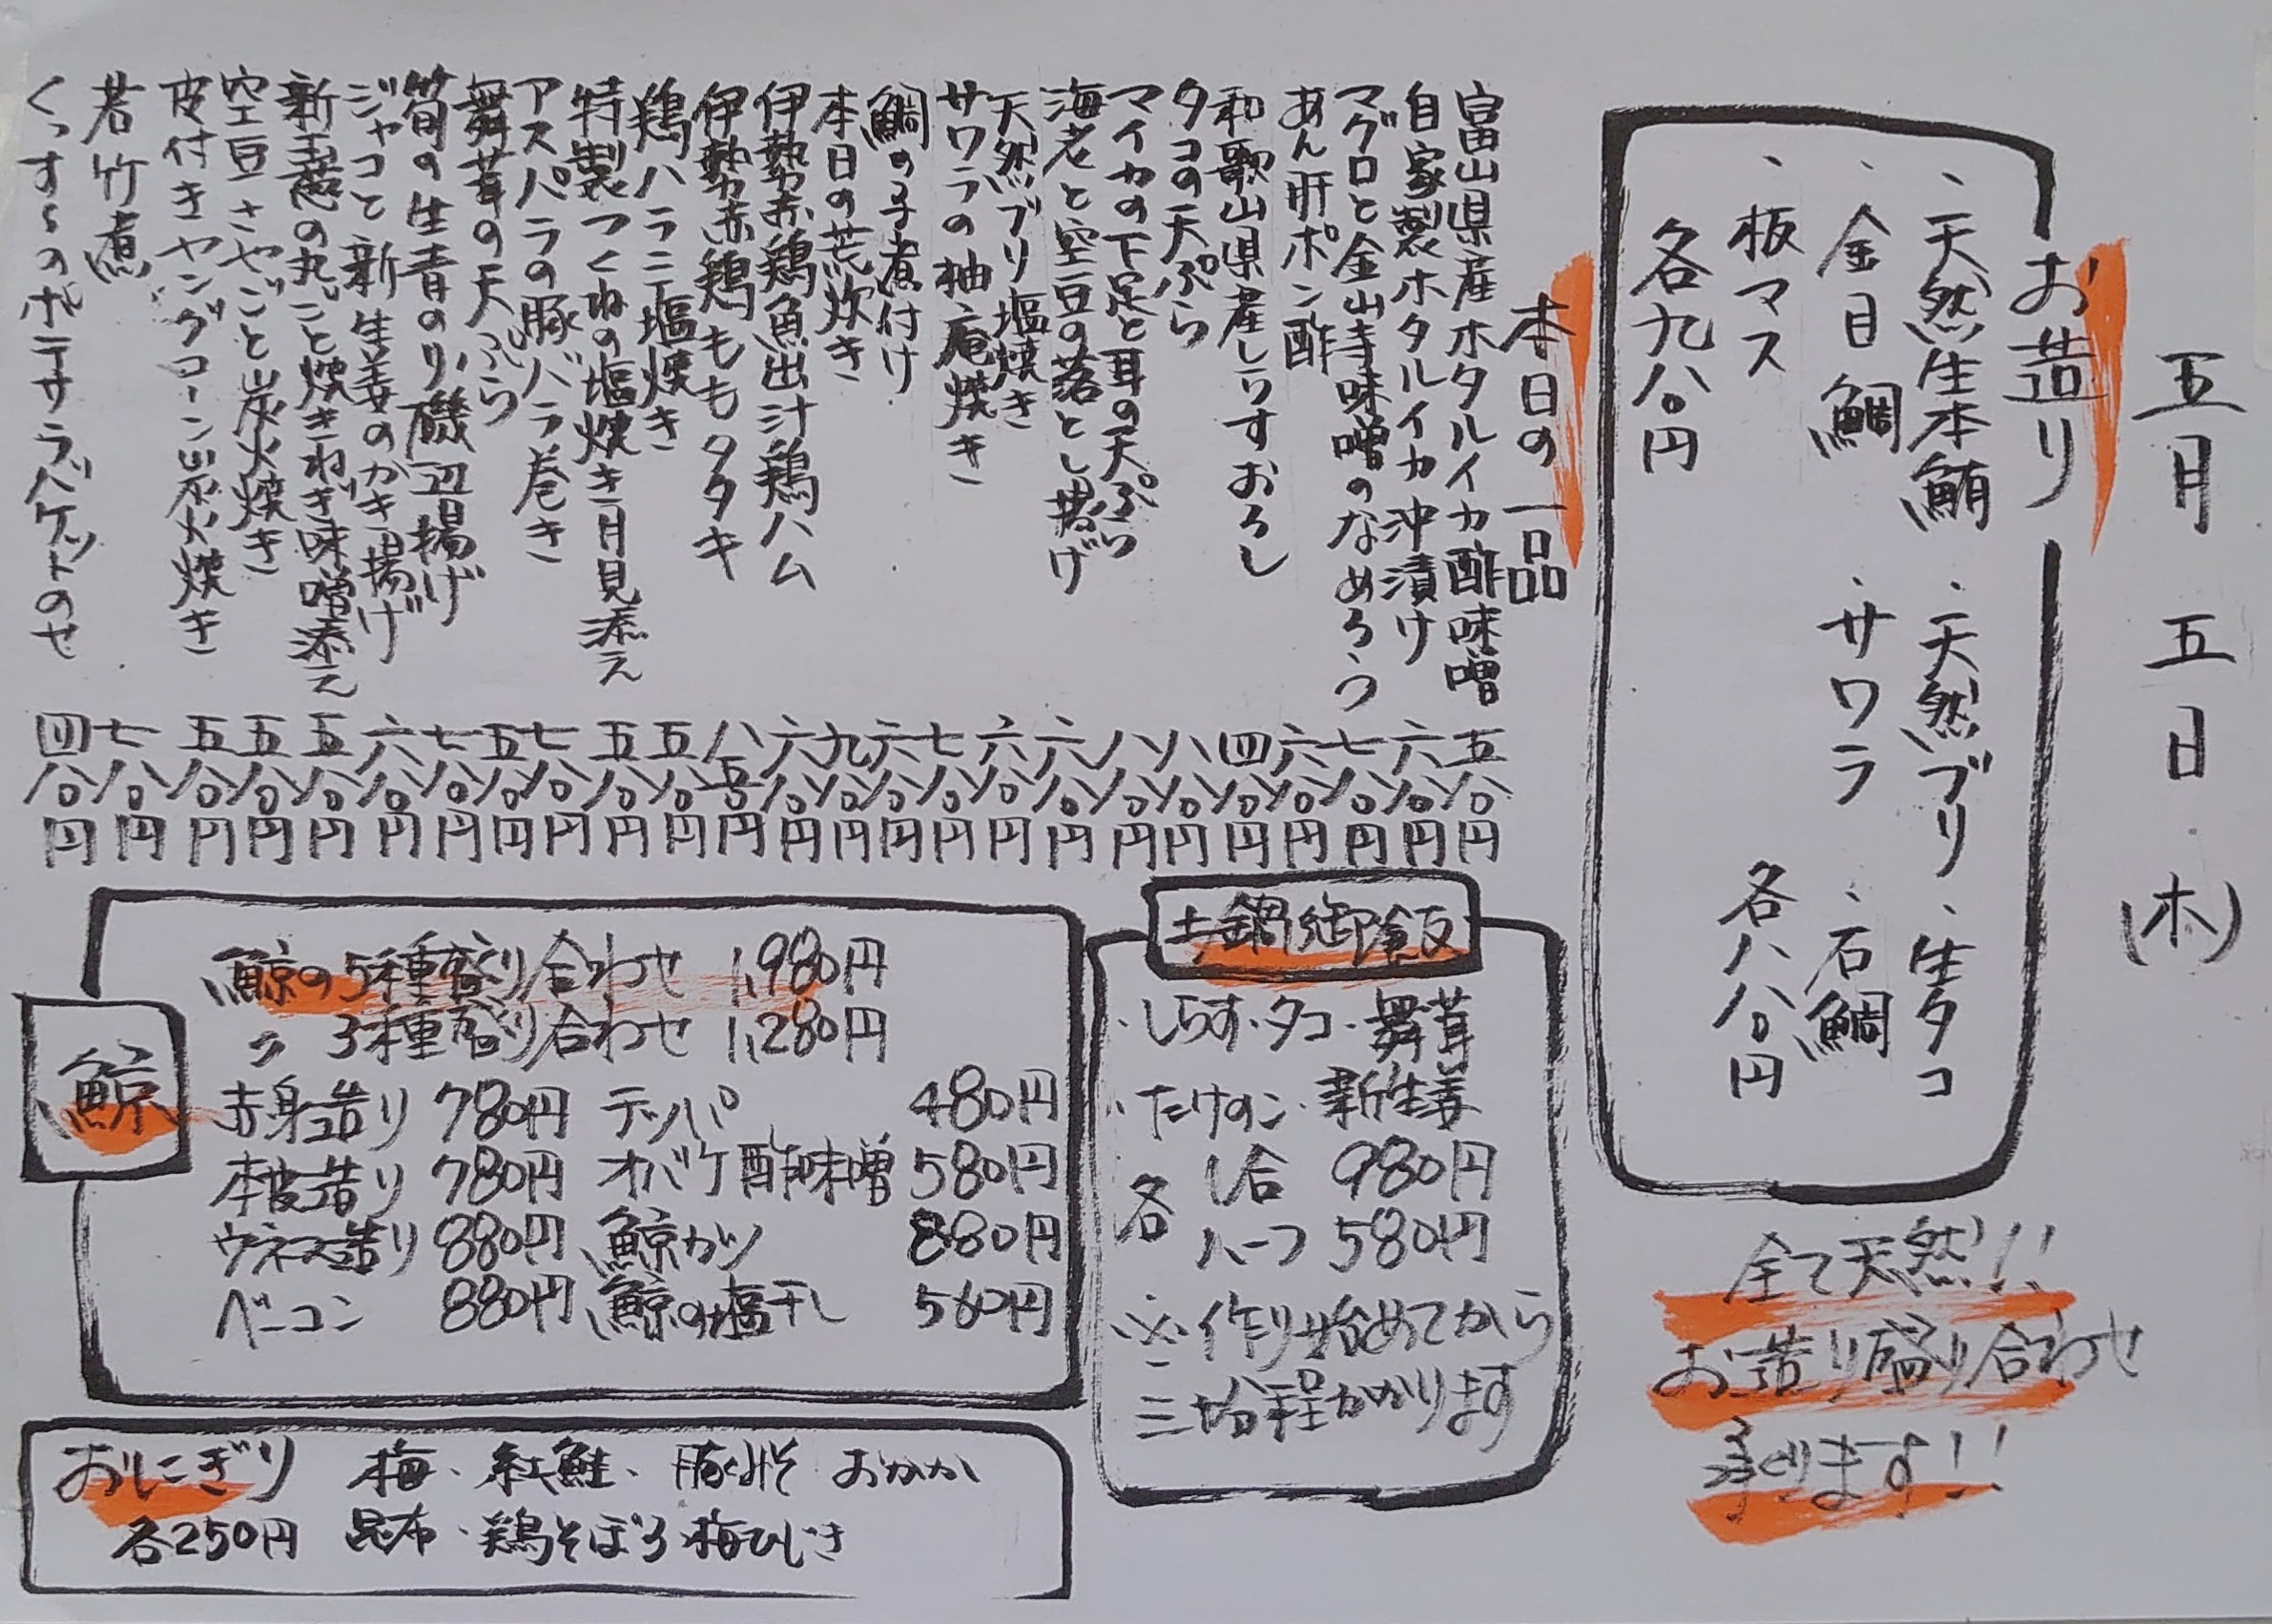 五月五日(木)
お造り
、天然生本鮪 、天然ブリ 、生タコ
、金目鯛 、サワラ 、石鯛
、板マス 各八八〇円
各九八〇円
全て天然!!
お造り盛り合わせ
承ります!!
本日の一品
富山県産ホタルイカ酢味噌 五八〇円
自家製ホタルイカ沖漬け 六八〇円
マグロと金山寺味噌のなめろう 七八〇円
あん肝ポン酢 六八〇円
和歌山県産しらすおろし 四八〇円
タコの天ぷら 八八〇円
マイカの下足と耳の天ぷら 八八〇円
海老と空豆の落とし揚げ 六八〇円
天然ブリ塩焼き 六八〇円
サワラの柚庵焼き 七八〇円
鯛の子煮付け 六八〇円
本日の荒炊き 九八〇円
伊勢赤鶏魚出汁鶏ハム 六八〇円
伊勢赤鶏ももタタキ 八五〇円
鶏ハラミ塩焼き 五八〇円
特製つくねの塩焼き月見添え 五八〇円
アスパラの豚バラ巻き 七八〇円
舞茸の天ぷら 五八〇円
筍の生青のり磯辺揚げ 七八〇円
ジャコと新生姜のかき揚げ 六八〇円
新玉葱の丸ごと焼きねぎ味噌添え 五八〇円
空豆さやごと炭火焼き 五八〇円
皮付きヤングコーン炭火焼き 五八〇円
若竹煮 七八〇円
くっすんのポテサラバゲットのせ 四八〇円
土鍋御飯
・しらす・タコ・舞茸
・たけのこ・新生姜
各 1合 980円
ハーフ 580円
※作り始めてから
三十分程かかります
鯨
鯨の5種盛り合わせ 1,980円
〃 3種盛り合わせ 1,280円
赤身造り 780円 テッパ 480円
本皮造り 780円 オバケ酢味噌 580円
ウネス造り 880円 鯨カツ 880円
ベーコン 880円 鯨の塩干し 560円
おにぎり 梅・紅鮭・豚みそ おかか
各250円 昆布・鶏そぼろ・梅ひじき